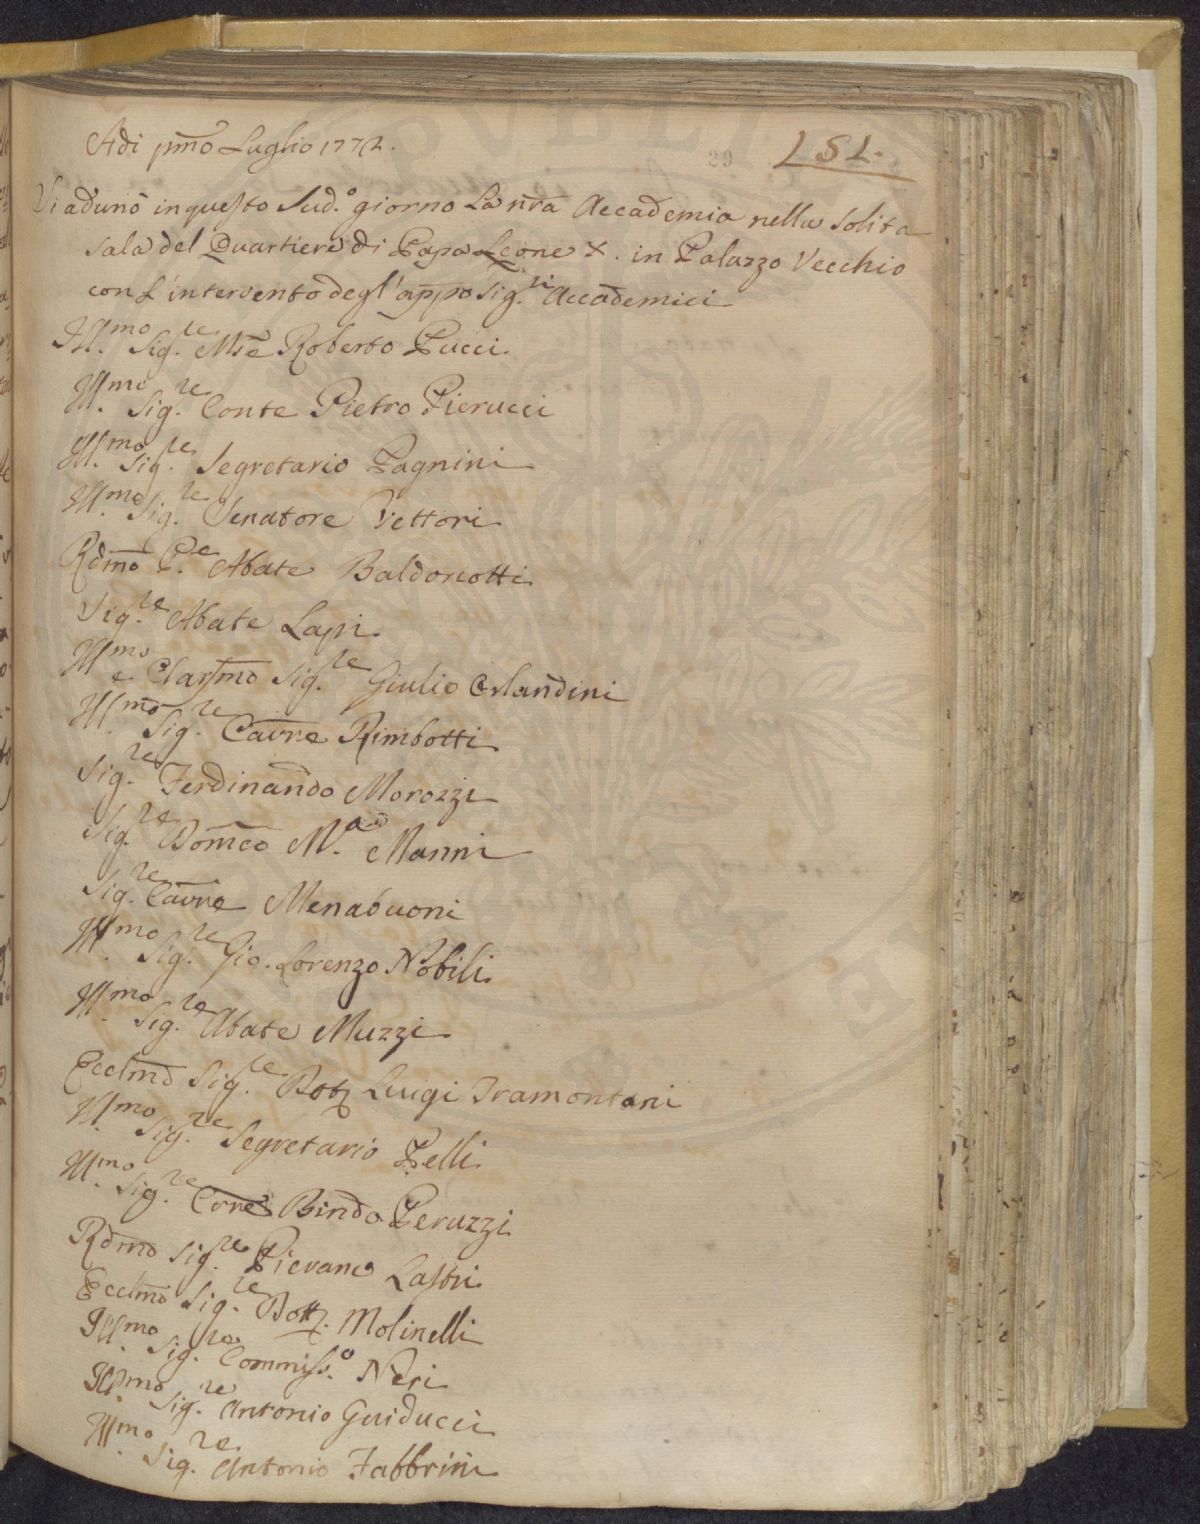 Adi pmo Luglio 1772.
29
LSL.
Si adunò in questo Sud.o giorno La nra Accademia nella solita
sala del Quartiere di Papa Leone X. in Palazzo Vecchio
con L'intervento degl'appo Sig.ri Accademici
Ill.mo Sig.re Mse Roberto Pucci
Ill.mo Sig.re Conte Pietro Pierucci
Ill.mo Sig.re Segretario Pagnini
Ill.mo Sig.re Senatore Vettori
Rdmo P.e Abate Baldoriotti
Sig.re Abate Lapi
Ill.mo e Clarsmo Sig.re Giulio Orlandini
Ill.mo Sig.re Cavre Rimbotti
Sig.re Ferdinando Morozzi
Sig.re Domco M.a Manni
Sig.re Cavre Menabuoni
Ill.mo Sig.re Gio. Lorenzo Nobili
Ill.mo Sig.re Abate Muzzi
Ecclmo Sig.re Dott Luigi Tramontani
Ill.mo Sig.re Segretario Pelli
Ill.mo Sig.re Bindo Peruzzi
Rdmo Sig.re Pievano Lastri
Ecclmo Sig.re Dott. Molinelli
Ill.mo Sig.re Commiss.o Neri
Ill.mo Sig.re Antonio Guiducci
Ill.mo Sig.re Antonio Fabbrini